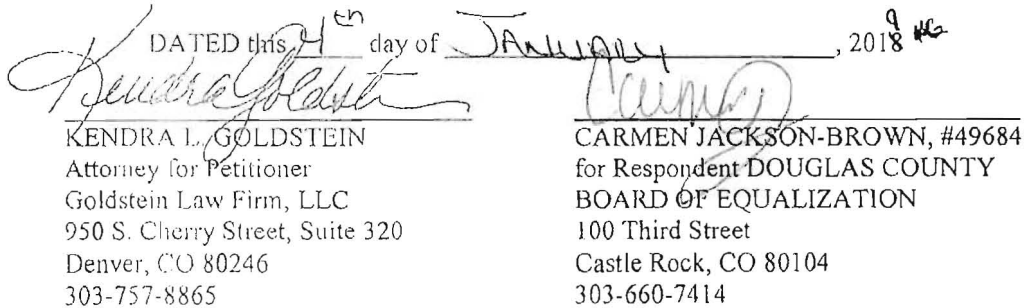 DATED this 4th day of JANUARY, 2018 9 KG
Kendra Goldstein
KENDRA L. GOLDSTEIN
Attorney for Petitioner
Goldstein Law Firm, LLC
950 S. Cherry Street, Suite 320
Denver, CO 80246
303-757-8865
CARMEN JACKSON-BROWN, #49684
for Respondent DOUGLAS COUNTY
BOARD OF EQUALIZATION
100 Third Street
Castle Rock, CO 80104
303-660-7414